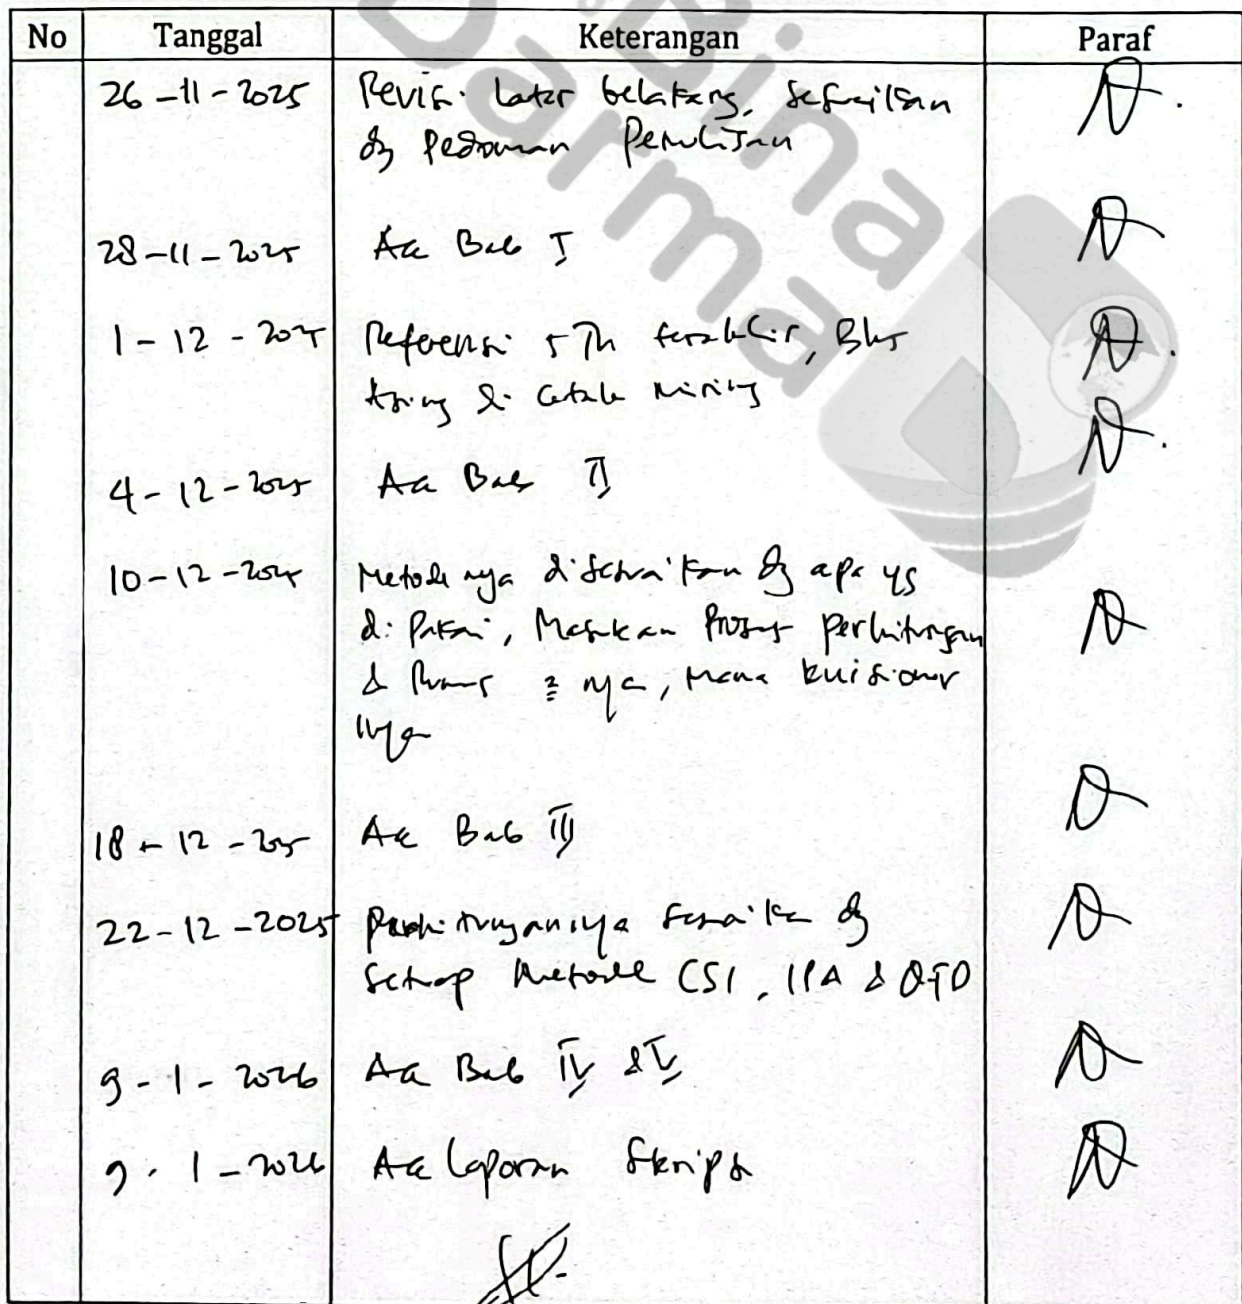 Bina
Darma
No Tanggal Keterangan Paraf
26-11-2025 Revisi latar belakang, sesuaikan
dg pedoman Penulisan
28-11-2025 Acc Bab I
1-12-2025 Referensi 5 Th terakhir, Bhs
Asing di Cetak miring
4-12-2025 Acc Bab II
10-12-2025 Metode nya disesuaikan dg apa yg
di pakai, Masukan Proses perhitungan
& Rumus 2 nya, Mana kuisioner
nya
18-12-2025 Acc Bab III
22-12-2025 Perhitungannya sesuaikan dg
setiap Metode CSI, IPA & QFD
9-1-2026 Acc Bab IV & V
9-1-2026 Acc Laporan Skripsi